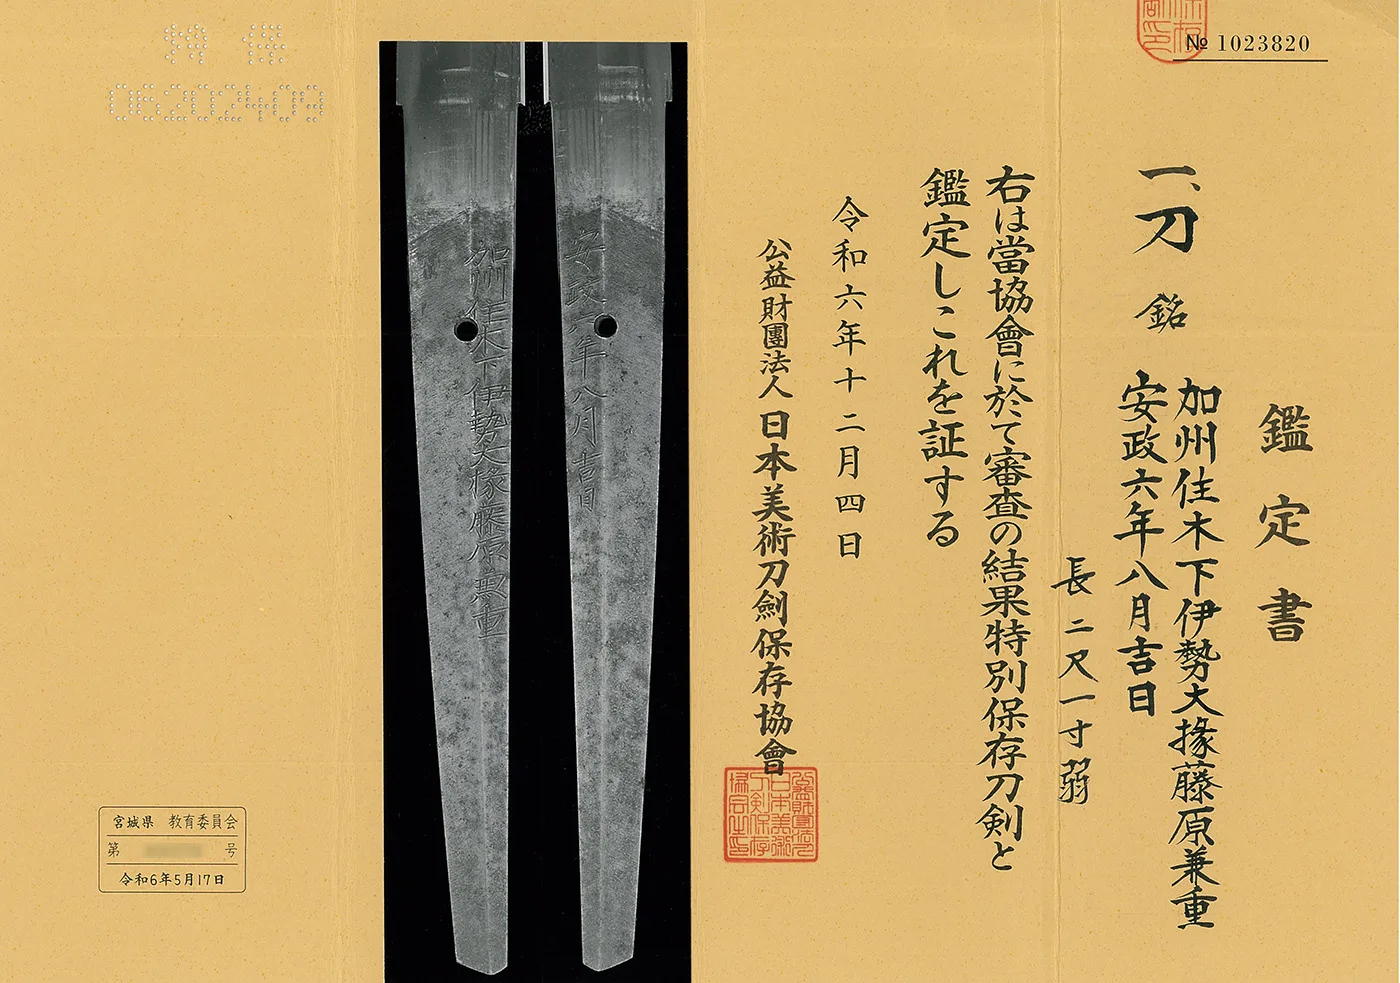 № 1023820
鑑定書
一、刀 銘 加州住木下伊勢大掾藤原兼重
安政六年八月吉日
長二尺一寸弱
右は當協會に於て審査の結果特別保存刀剣と
鑑定しこれを証する
令和六年十二月四日
公益財團法人日本美術刀劍保存協會
安政六年八月吉日
加州住木下伊勢大掾藤原兼重
06202409
宮城県 教育委員会
第 号
令和6年5月17日